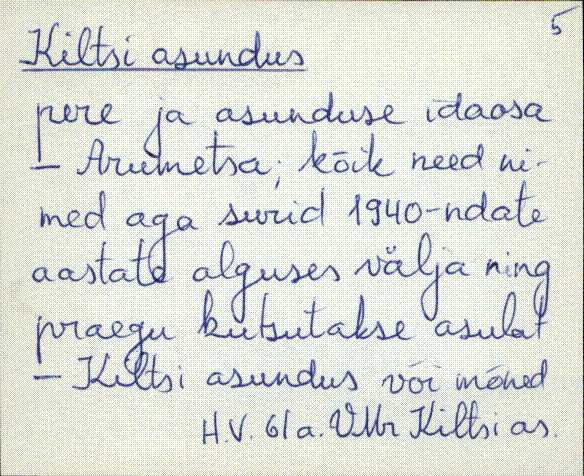 5
Kiltsi asundus
pere ja asunduse idaosa
– Arumetsa; kõik need ni-
med aga surid 1940-ndate
aastate alguses välja ning
praegu kutsutakse asulat
– Kiltsi asundus või mõned
H.V. 61a. VMr Kiltsi as.